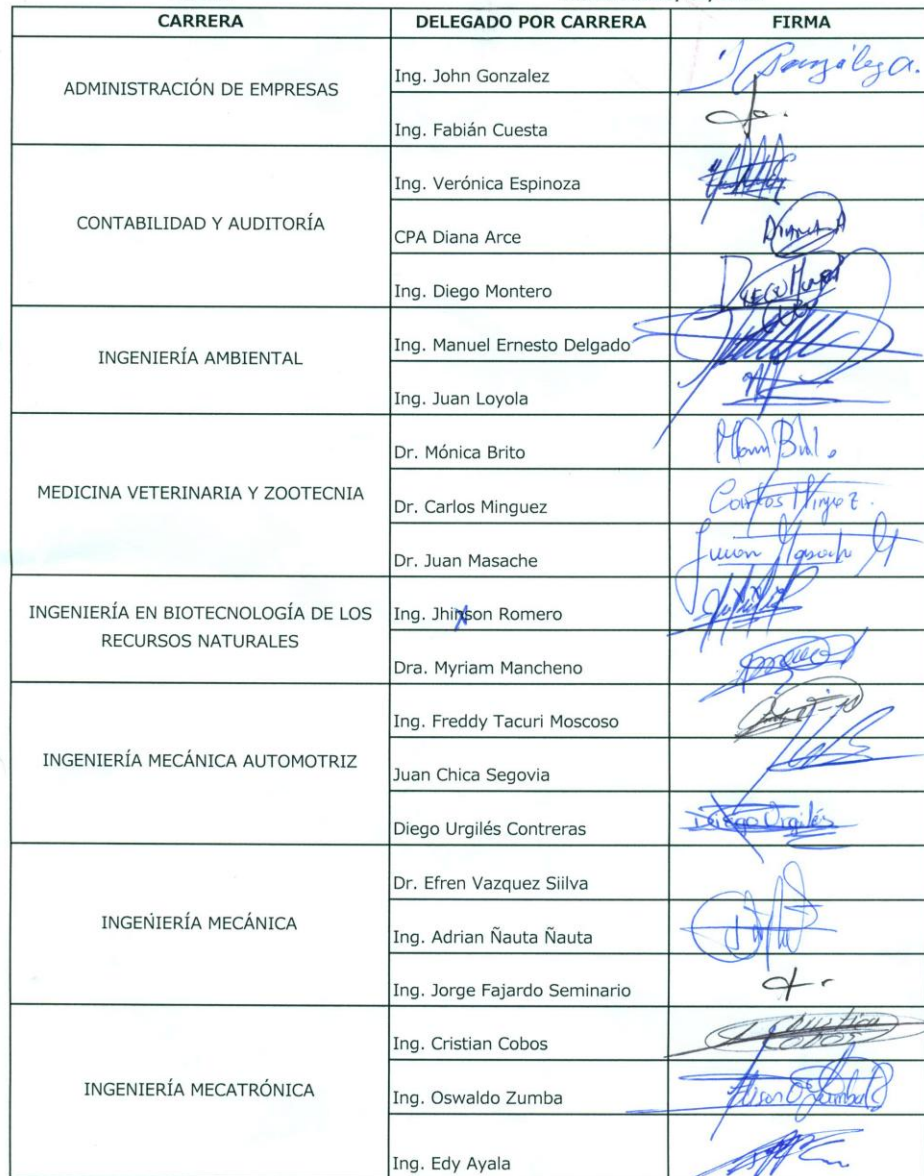 CARRERA DELEGADO POR CARRERA FIRMA
ADMINISTRACIÓN DE EMPRESAS
Ing. John Gonzalez
J González A.
Ing. Fabián Cuesta
CONTABILIDAD Y AUDITORÍA
Ing. Verónica Espinoza
CPA Diana Arce
Diana A
Ing. Diego Montero
INGENIERÍA AMBIENTAL
Ing. Manuel Ernesto Delgado
Ing. Juan Loyola
MEDICINA VETERINARIA Y ZOOTECNIA
Dr. Mónica Brito
Dr. Carlos Minguez
Carlos Minguez
Dr. Juan Masache
Juan Masache
INGENIERÍA EN BIOTECNOLOGÍA DE LOS
RECURSOS NATURALES
Ing. Jhinson Romero
Dra. Myriam Mancheno
INGENIERÍA MECÁNICA AUTOMOTRIZ
Ing. Freddy Tacuri Moscoso
Juan Chica Segovia
Diego Urgilés Contreras
Diego Urgilés
INGENIERÍA MECÁNICA
Dr. Efren Vazquez Siilva
Ing. Adrian Ñauta Ñauta
Ing. Jorge Fajardo Seminario
INGENIERÍA MECATRÓNICA
Ing. Cristian Cobos
Cristian
COBOS
Ing. Oswaldo Zumba
Ing. Edy Ayala